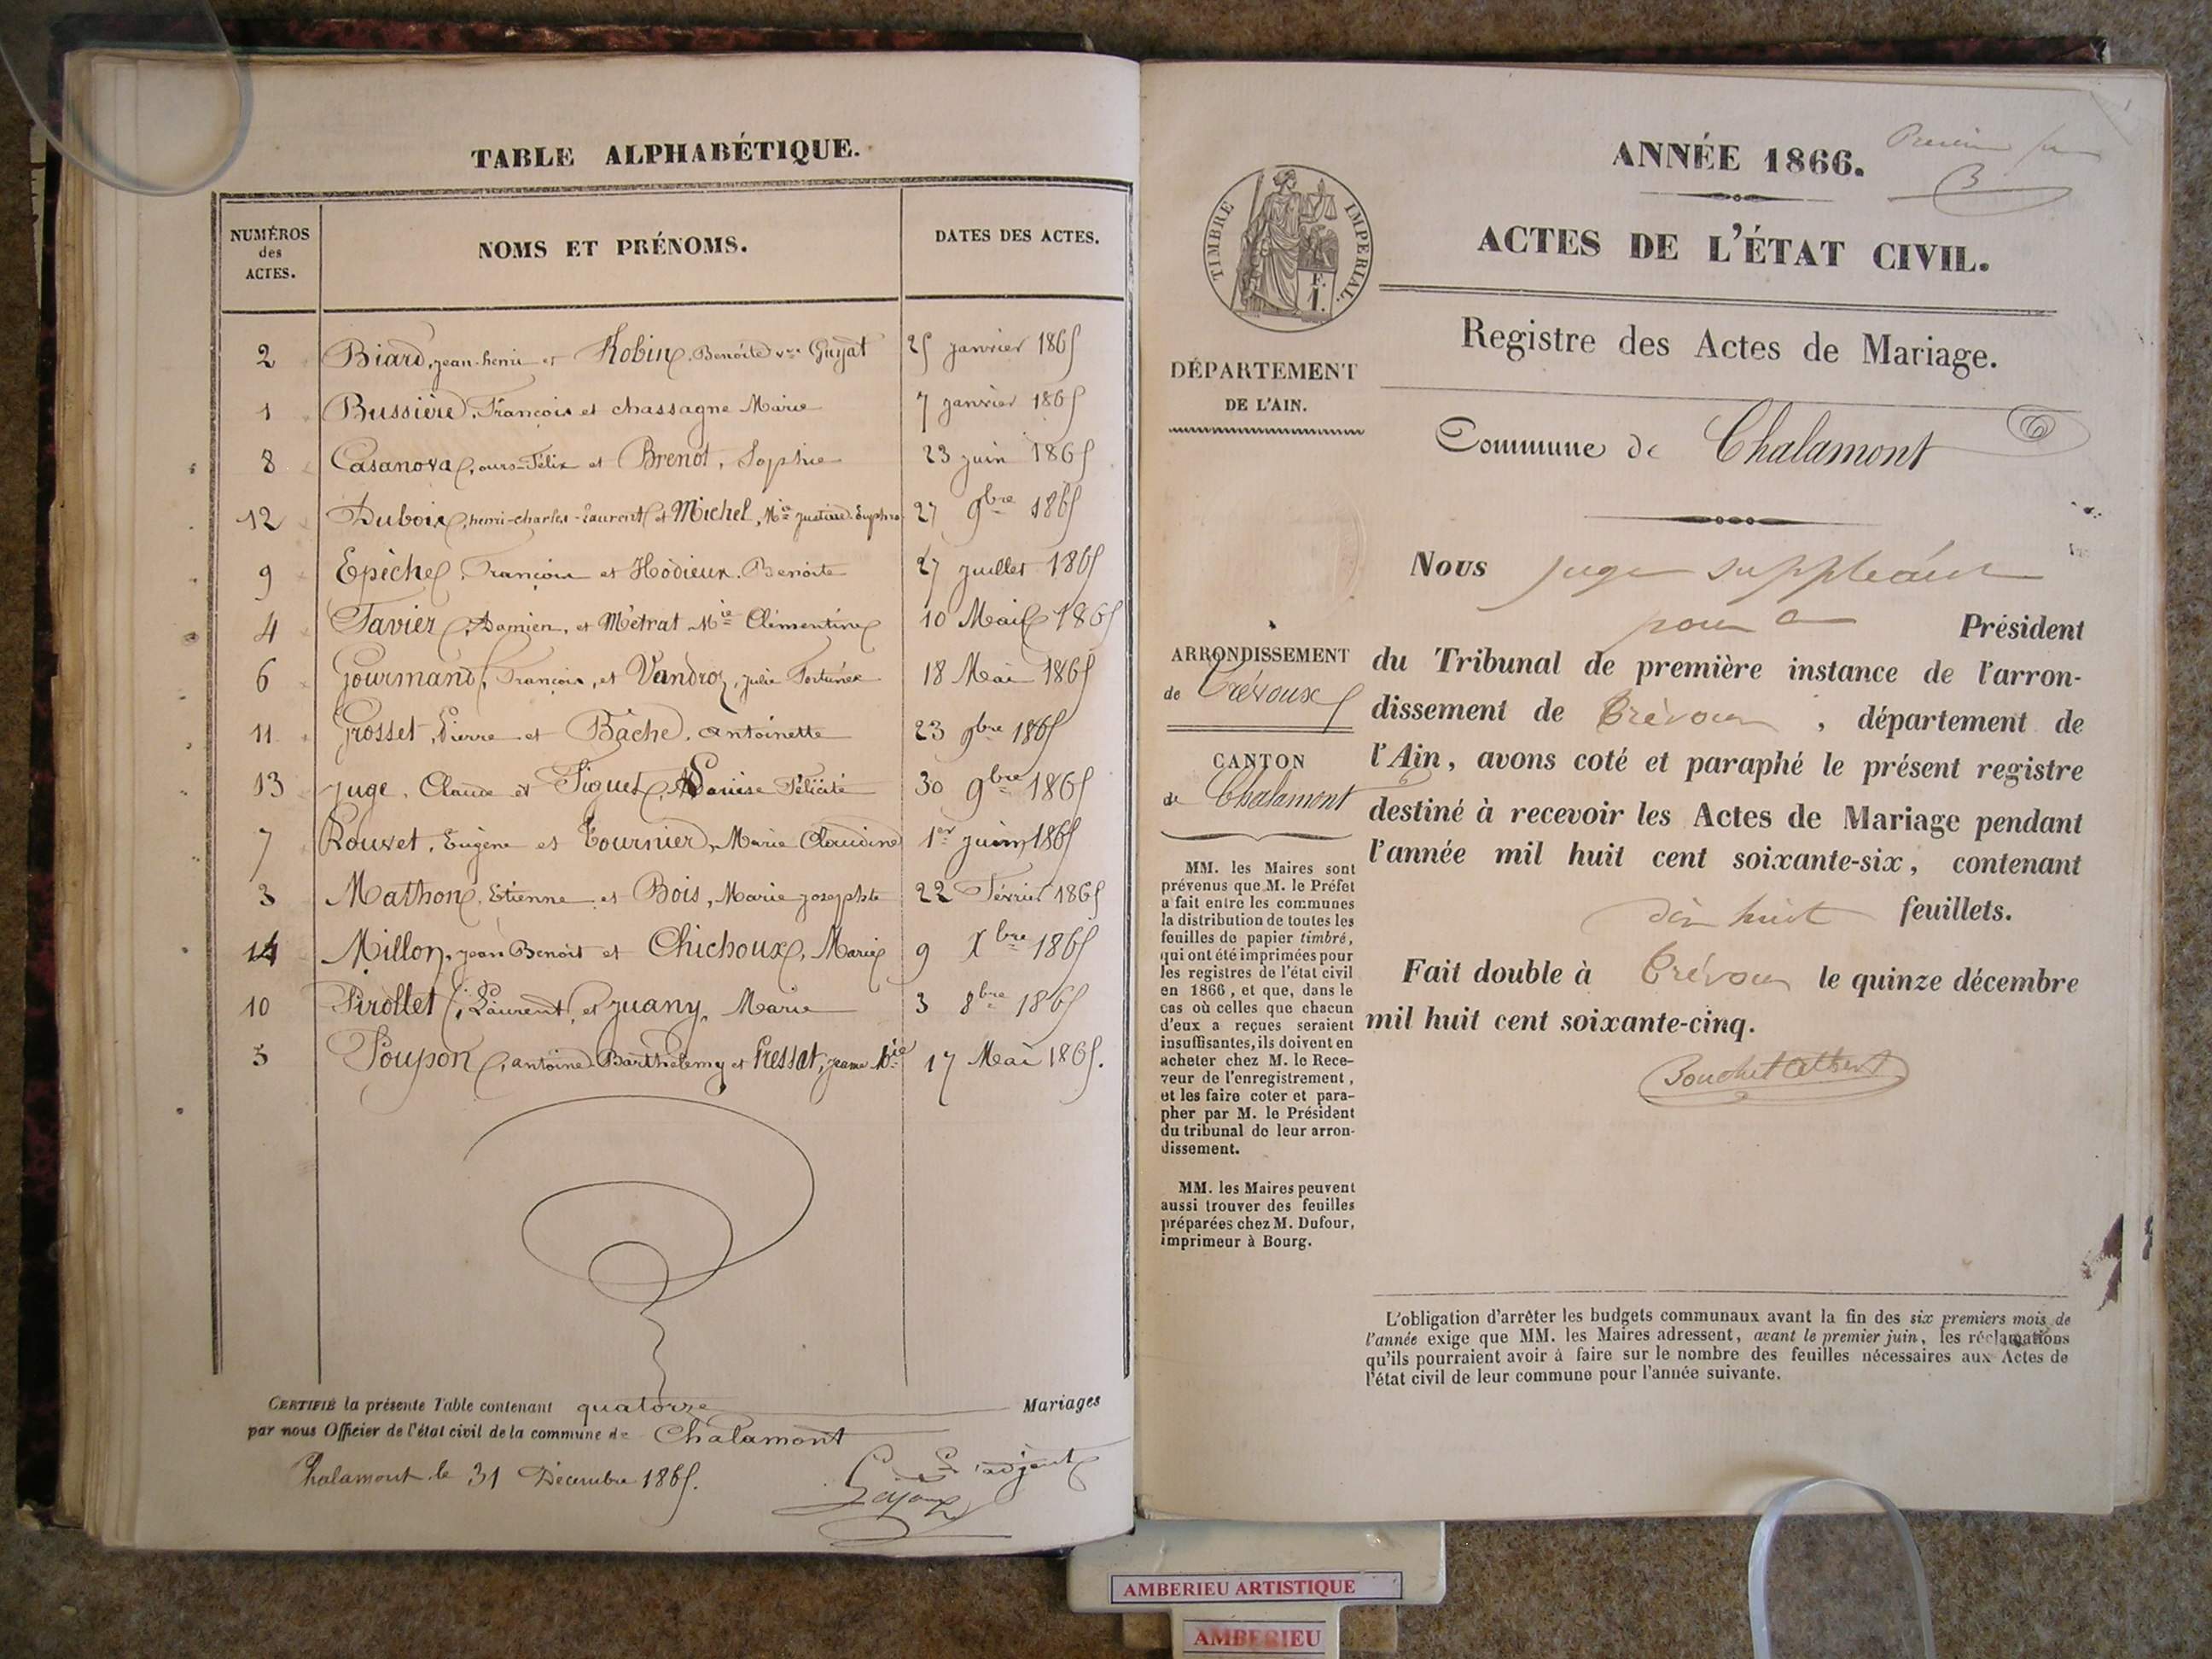 TABLE ALPHABÉTIQUE.
NUMÉROS
des
ACTES.
NOMS ET PRÉNOMS.
DATES DES ACTES.
2 Biard, jean-henri et Robin, Benoîte vve Guyat 25 janvier 1865
1 Bussière, François et chassagne Marie 7 janvier 1865
8 Casanova, ours-Félix et Brenot, Sophie 23 juin 1865
12 Dubois, henri-charles-Laurent et Michel, Mie justine 27 9bre 1865
9 Epèche, François et Hodieux, Benoite 27 juillet 1865
4 Favier, Damien, et Métrat Mie Clémentine 10 Mai 1865
6 Gourmand, François, et Vandroz, julie Fortunée 18 Mai 1865
11 Grosset, Pierre et Bâche, antoinette 23 9bre 1865
13 juge, Claude et Figuet, Félicité 30 9bre 1865
7 Louvet, Eugène et Tournier, Marie Claudine 1er juin 1865
3 Mathon, Etienne et Bois, Marie josephte 22 Février 1865
14 Millon, jean Benoit et Chichoux, Marie 9 Xbre 1865
10 Pirollet, Laurent, et juany, Marie 3 8bre 1865
5 Poupon, antoine Barthélemy et Pressat, jeanne Mie 17 Mai 1865.
CERTIFIÉ la présente Table contenant quatorze Mariages
par nous Officier de l'état civil de la commune de Chalamont
Chalamont le 31 Décembre 1865.
L'adjoint
ANNÉE 1866.
TIMBRE IMPERIAL.
ACTES DE L'ÉTAT CIVIL.
Registre des Actes de Mariage.
DÉPARTEMENT
DE L'AIN.
Commune de Chalamont
ARRONDISSEMENT
de Trévoux
CANTON
de Chalamont
MM. les Maires sont
prévenus que M. le Préfet
a fait entre les communes
la distribution de toutes les
feuilles de papier timbré,
qui ont été imprimées pour
les registres de l'état civil
en 1866, et que, dans le
cas où celles que chacun
d'eux a reçues seraient
insuffisantes, ils doivent en
acheter chez M. le Rece-
veur de l'enregistrement,
et les faire coter et para-
pher par M. le Président
du tribunal de leur arron-
dissement.
MM. les Maires peuvent
aussi trouver des feuilles
préparées chez M. Dufour,
imprimeur à Bourg.
Nous juge suppléant
pour Président
du Tribunal de première instance de l'arron-
dissement de Trévoux, département de
l'Ain, avons coté et paraphé le présent registre
destiné à recevoir les Actes de Mariage pendant
l'année mil huit cent soixante-six, contenant
dix huit feuillets.
Fait double à Trévoux le quinze décembre
mil huit cent soixante-cinq.
Bouchet Albert
L'obligation d'arrêter les budgets communaux avant la fin des six premiers mois de
l'année exige que MM. les Maires adressent, avant le premier juin, les réclamations
qu'ils pourraient avoir à faire sur le nombre des feuilles nécessaires aux Actes de
l'état civil de leur commune pour l'année suivante.
AMBERIEU ARTISTIQUE
AMBERIEU